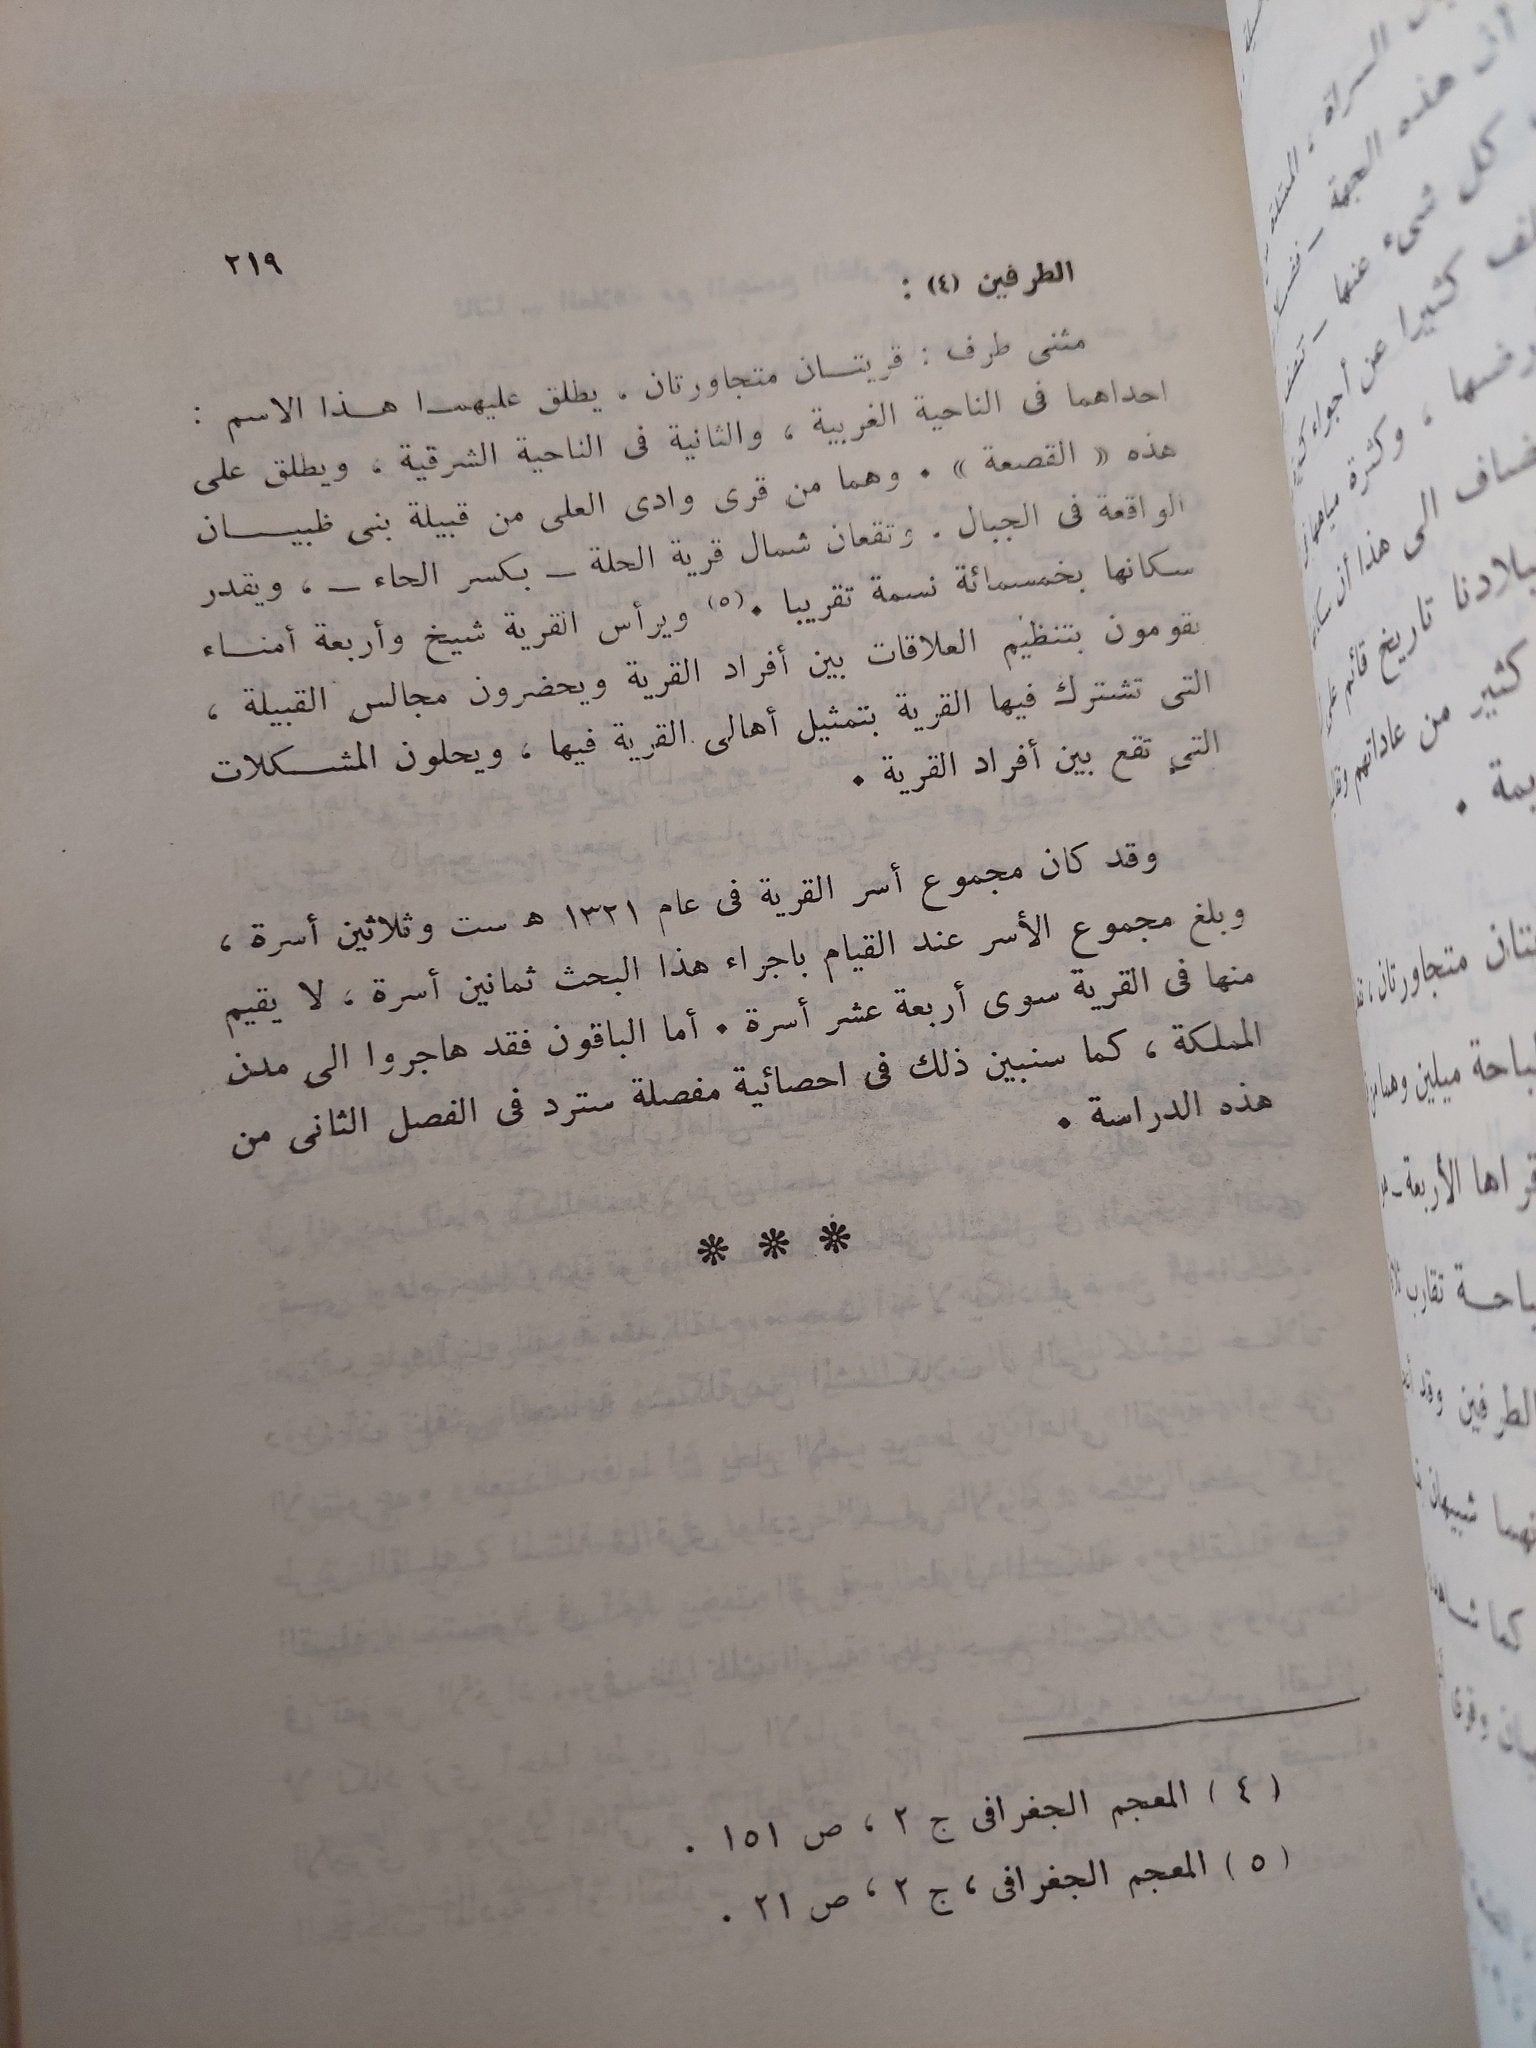 ٢١٩
الطرفين (٤) :
مثنى طرف : قريتـــان متجاورتان ، يطلق عليهمـا هــذا الاسم :
احداهما فى الناحية الغربية ، والثانية فى الناحية الشرقية ، ويطلق على
هذه « القصعة » . وهما من قرى وادى العلى من قبيلة بنى ظبيـــان
الواقعة فى الجبال . وتقعان شمال قرية الحلة ـ بكسر الحاء ـ ، ويقدر
سكانها بخمسمائة نسمة تقريبا .(٥) ويرأس القرية شيخ وأربعة أمنـاء
يقومون بتنظيم العلاقات بين أفراد القرية ويحضرون مجالس القبيلة ،
التى تشترك فيها القرية بتمثيل أهالى القرية فيها ، ويحلون المشـــكلات
التى تقع بين أفراد القرية .
وقد كان مجموع أسر القرية فى عام ١٣٢١ هـ ست وثلاثين أسرة ،
وبلغ مجموع الأسر عند القيام باجراء هذا البحث ثمانين أسرة ، لا يقيم
منها فى القرية سوى أربعة عشر أسرة . أما الباقون فقد هاجروا الى مدن
المملكة ، كما سنبين ذلك فى احصائية مفصلة سترد فى الفصل الثانى من
هذه الدراسة .
* * *
( ٤ ) المعجم الجغرافى ج ٢ ، ص ١٥١ .
( ٥ ) المعجم الجغرافى ، ج ٢ ، ص ٢١ .
السراة ،
ان هذه الجهة ـ
كل شىء عنها ـ
كثيرا عن أجواء
، وكثرة مياهها
الى هذا أن
بلادنا تاريخ قائم
كثير من عاداتهم
متجاورتان ،
ميلين
الأربعة ـ
تقارب
الطرفين وقد
شبيهان
كما
وقرى